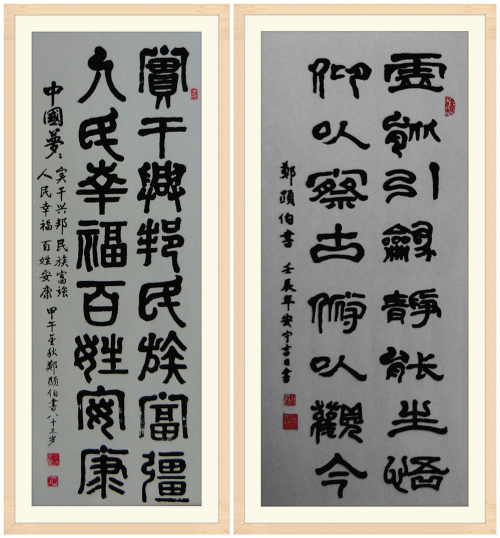 實干興邦民族富彊
人民幸福百姓安康
中國夢
实干兴邦民族富強
人民幸福百姓安康 甲午金秋鄭頤伯書八十三岁
虛能引龢靜能生悟
仰以察古俯以觀今
鄭頤伯書 壬辰年安宁吉日書